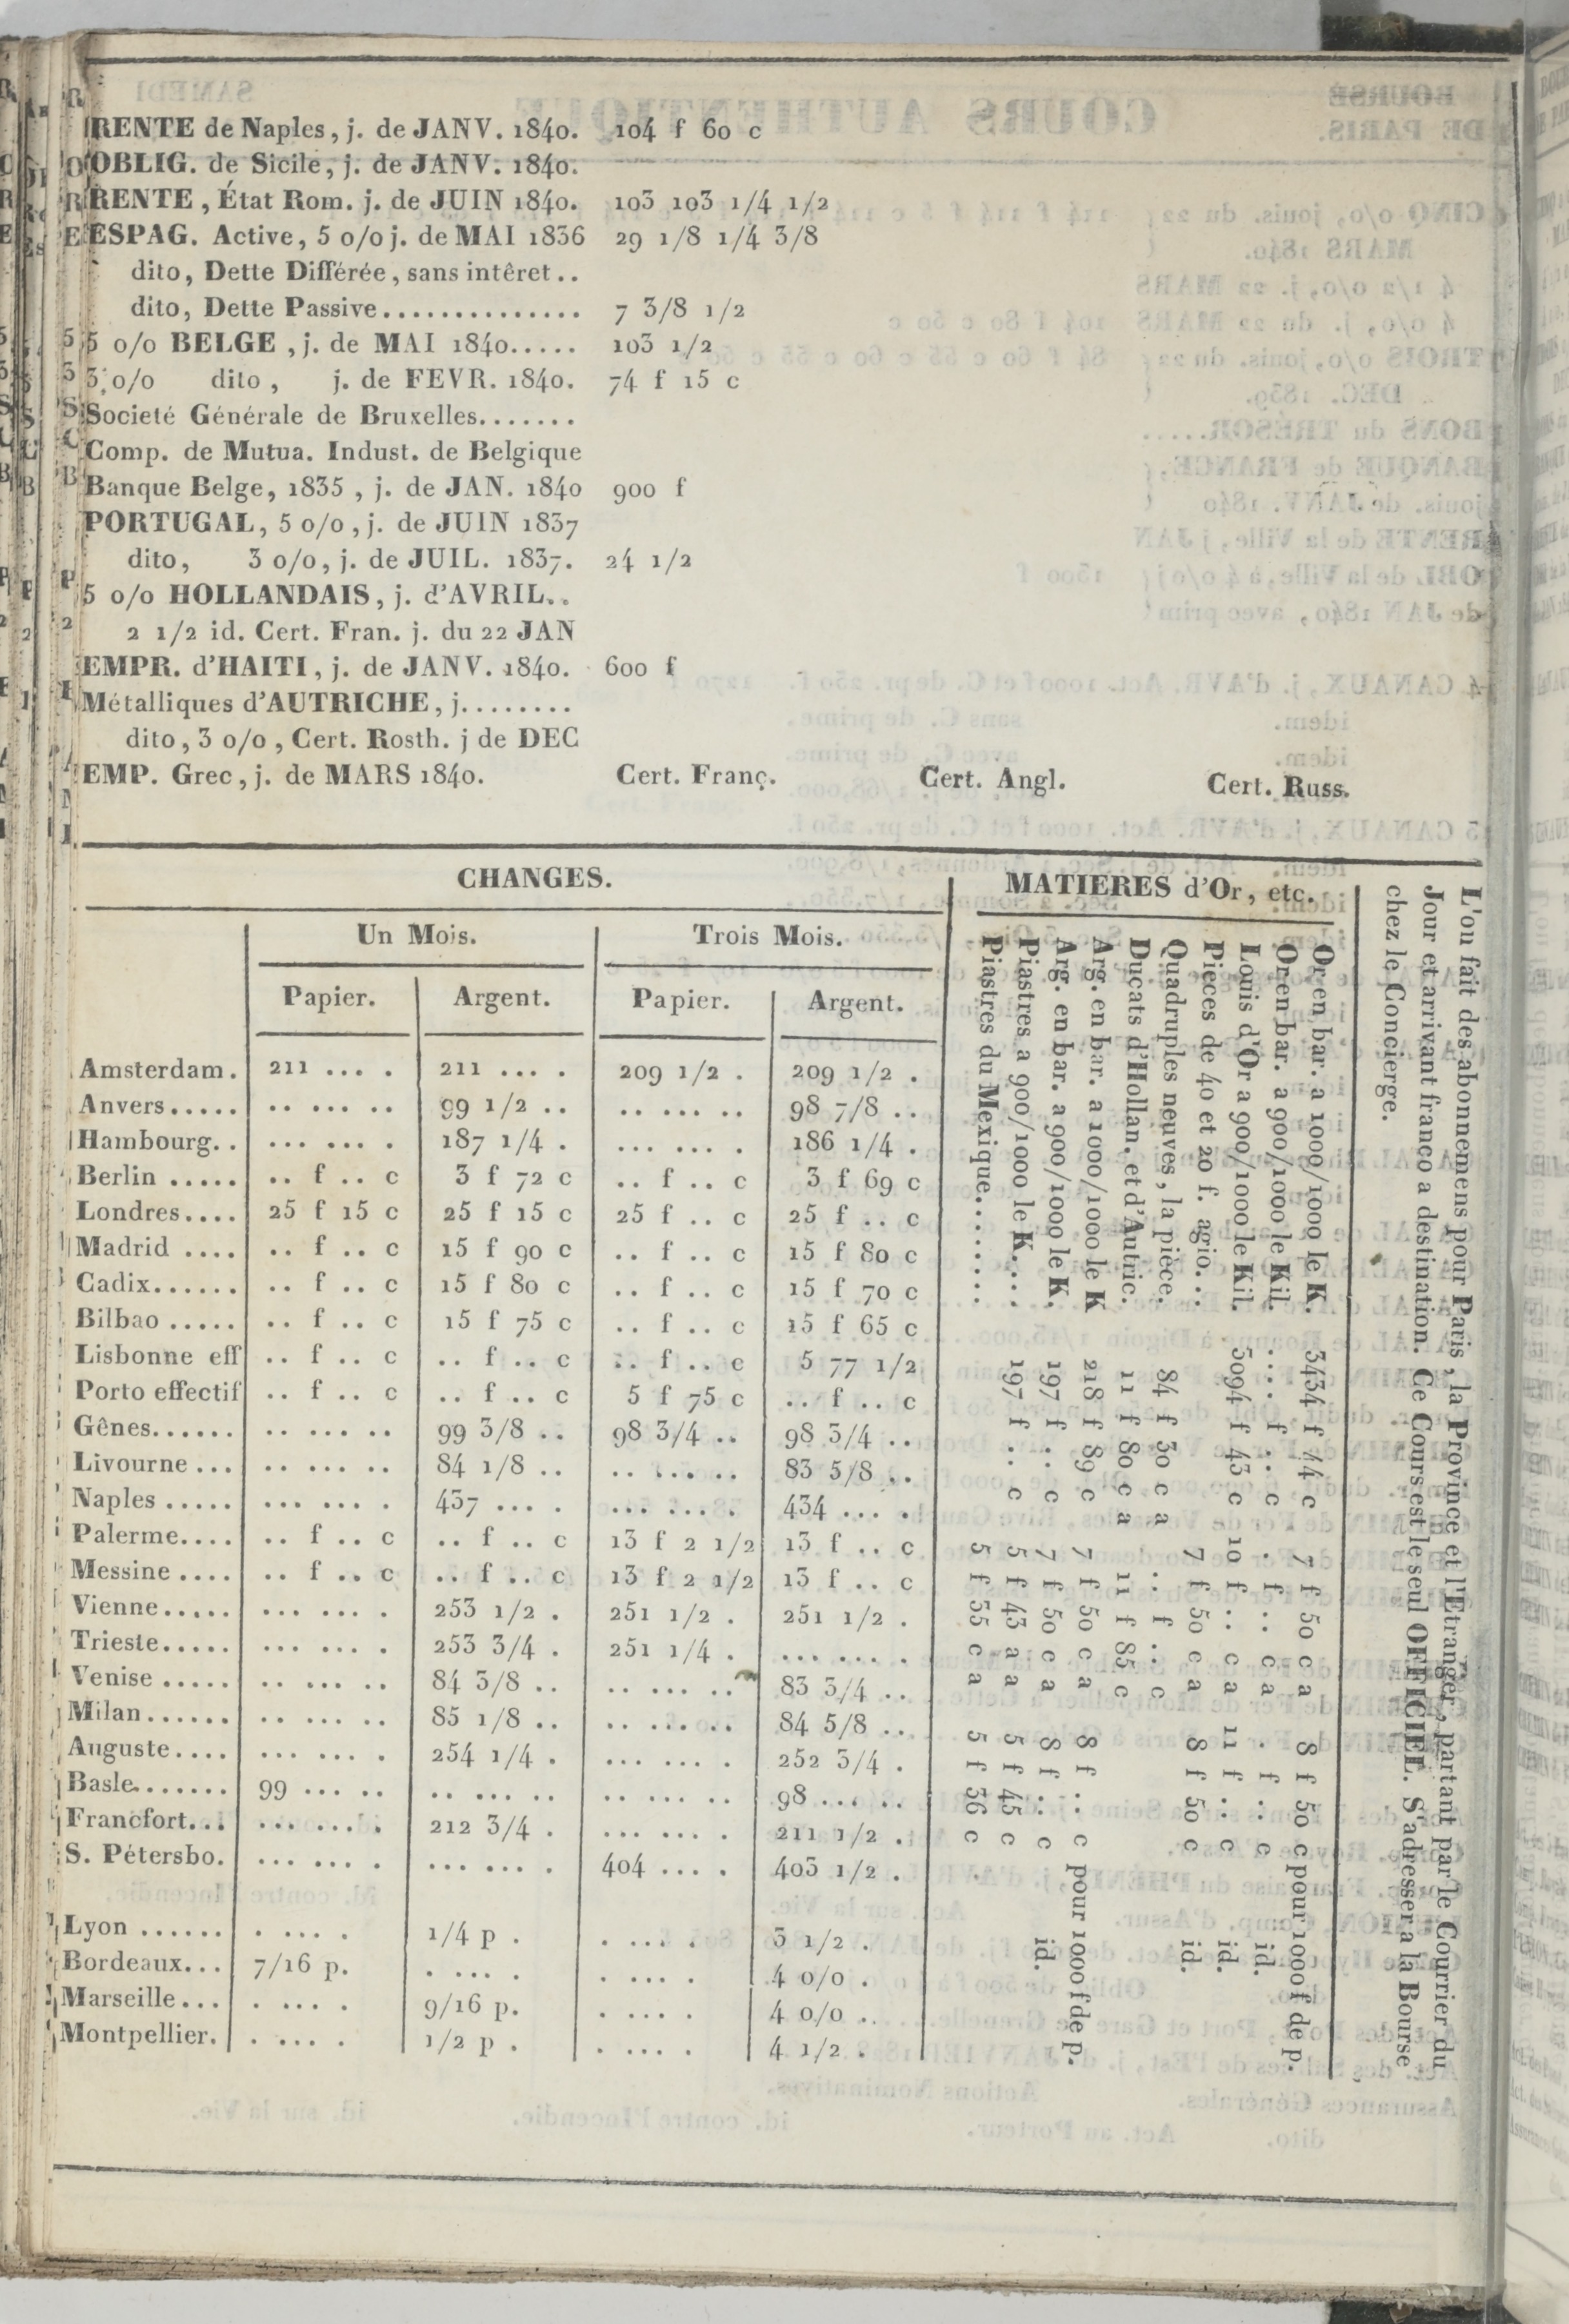 RENTE de Naples, j. de JANV. 1840. 104 f 60 c
OBLIG. de Sicile, j. de JANV. 1840.
RENTE, État Rom. j. de JUIN 1840. 103 103 1/4 1/2
ESPAG. Active, 5 o/o j. de MAI 1836 29 1/8 1/4 3/8
dito, Dette Différée, sans intêret..
dito, Dette Passive.............. 7 3/8 1/2
5 o/o BELGE, j. de MAI 1840..... 103 1/2
3 o/o dito, j. de FEVR. 1840. 74 f 15 c
Societé Générale de Bruxelles.......
Comp. de Mutua. Indust. de Belgique
Banque Belge, 1835, j. de JAN. 1840 900 f
PORTUGAL, 5 o/o, j. de JUIN 1837
dito, 3 o/o, j. de JUIL. 1837. 24 1/2
5 o/o HOLLANDAIS, j. d'AVRIL..
2 1/2 id. Cert. Fran. j. du 22 JAN
EMPR. d'HAITI, j. de JANV. 1840. 600 f
Métalliques d'AUTRICHE, j........
dito, 3 o/o, Cert. Rosth. j de DEC
EMP. Grec, j. de MARS 1840. Cert. Franç. Cert. Angl. Cert. Russ.
CHANGES.
Un Mois. Trois Mois.
Papier. Argent. Papier. Argent.
Amsterdam. 211 .... . 211 .... . 209 1/2 . 209 1/2 .
Anvers..... .. ... .. 99 1/2 .. .. ... .. 98 7/8 ..
Hambourg.. ... ... . 187 1/4 . ... ... . 186 1/4 .
Berlin ..... .. f .. c 3 f 72 c .. f .. c 3 f 69 c
Londres.... 25 f 15 c 25 f 15 c 25 f .. c 25 f .. c
Madrid .... .. f .. c 15 f 90 c .. f .. c 15 f 80 c
Cadix...... .. f .. c 15 f 80 c .. f .. c 15 f 70 c
Bilbao ..... .. f .. c 15 f 75 c .. f .. c 15 f 65 c
Lisbonne eff .. f .. c .. f .. c .. f .. c 5 77 1/2
Porto effectif .. f .. c .. f .. c 5 f 75 c .. f .. c
Gênes...... .. ... .. 99 3/8 .. 98 3/4 .. 98 3/4 ..
Livourne ... .. ... .. 84 1/8 .. .. ... .. 83 5/8 ..
Naples ..... ... ... . 437 ... . ... ... . 434 ... .
Palerme.... .. f .. c .. f .. c 13 f 2 1/2 13 f .. c
Messine .... .. f .. c .. f .. c 13 f 2 1/2 13 f .. c
Vienne..... ... ... . 253 1/2 . 251 1/2 . 251 1/2 .
Trieste..... ... ... . 253 3/4 . 251 1/4 . ... ... .
Venise ..... .. ... .. 84 3/8 .. .. ... .. 83 3/4 ..
Milan...... .. ... .. 85 1/8 .. .. ... .. 84 5/8 ..
Auguste.... ... ... . 254 1/4 . ... ... . 252 3/4 .
Basle....... 99 ... .. .. ... .. .. ... .. 98 ... ..
Francfort... ... ... . 212 3/4 . ... ... . 211 1/2 .
S. Pétersbo. ... ... . ... ... . 404 ... . 403 1/2 .
Lyon ...... . ... . 1/4 p . . ... . 3 1/2 .
Bordeaux... 7/16 p. . ... . . ... . 4 o/o .
Marseille... . ... . 9/16 p. . ... . 4 o/o ..
Montpellier. . ... . 1/2 p . . ... . 4 1/2 .
MATIERES d'Or, etc.
Or en bar. a 1000/1000 le K. 3434 f 44 c 7 f 50 c a 8 f 50 c pour 1000 f de p.
Or en bar. a 900/1000 le Kil. .... f .. c . f .. c a . f .. c id.
Louis d'Or a 900/1000 le Kil. 3094 f 43 c 10 f .. c a 11 f .. c id.
Pieces de 40 et 20 f. agio... 7 f 50 c a 8 f 50 c id.
Quadruples neuves, la pièce. 84 f 30 c a .. f .. c
Ducats d'Hollan. et d'Autric. 11 f 80 c a 11 f 85 c
Arg. en bar. a 1000/1000 le K 218 f 89 c 7 f 50 c a 8 f .. c pour 1000 f de p.
Arg. en bar. a 900/1000 le K. 197 f .. c 7 f 50 c a 8 f .. c id.
Piastres a 900/1000 le K.... 197 f .. c 5 f 43 a a 5 f 45 c
Piastres du Mexique........ 5 f 35 c a 5 f 36 c .
L'on fait des abonnemens pour Paris, la Province et l'Etranger, partant par le Courrier du
Jour et arrivant franco a destination. Ce Cours est le seul OFFICIEL. S'adresser a la Bourse
chez le Concierge.